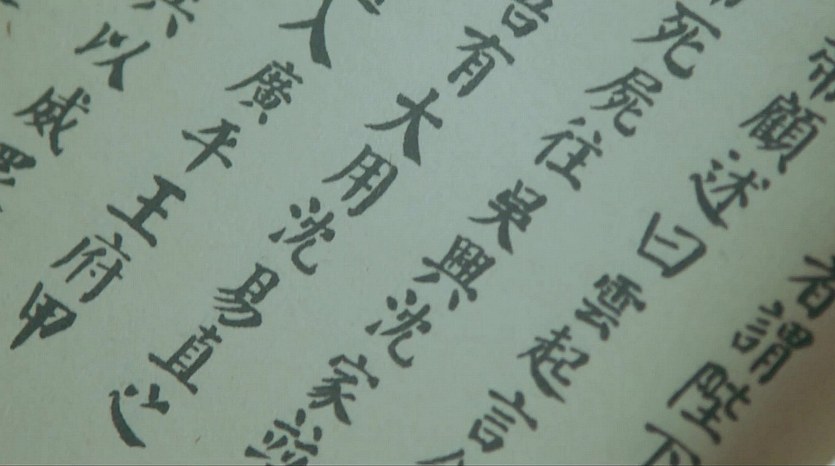 者謂陛下
帝顧述曰雲起言
死屍往吳興沈家並
有大用沈易直之
入廣平王府甲
以威